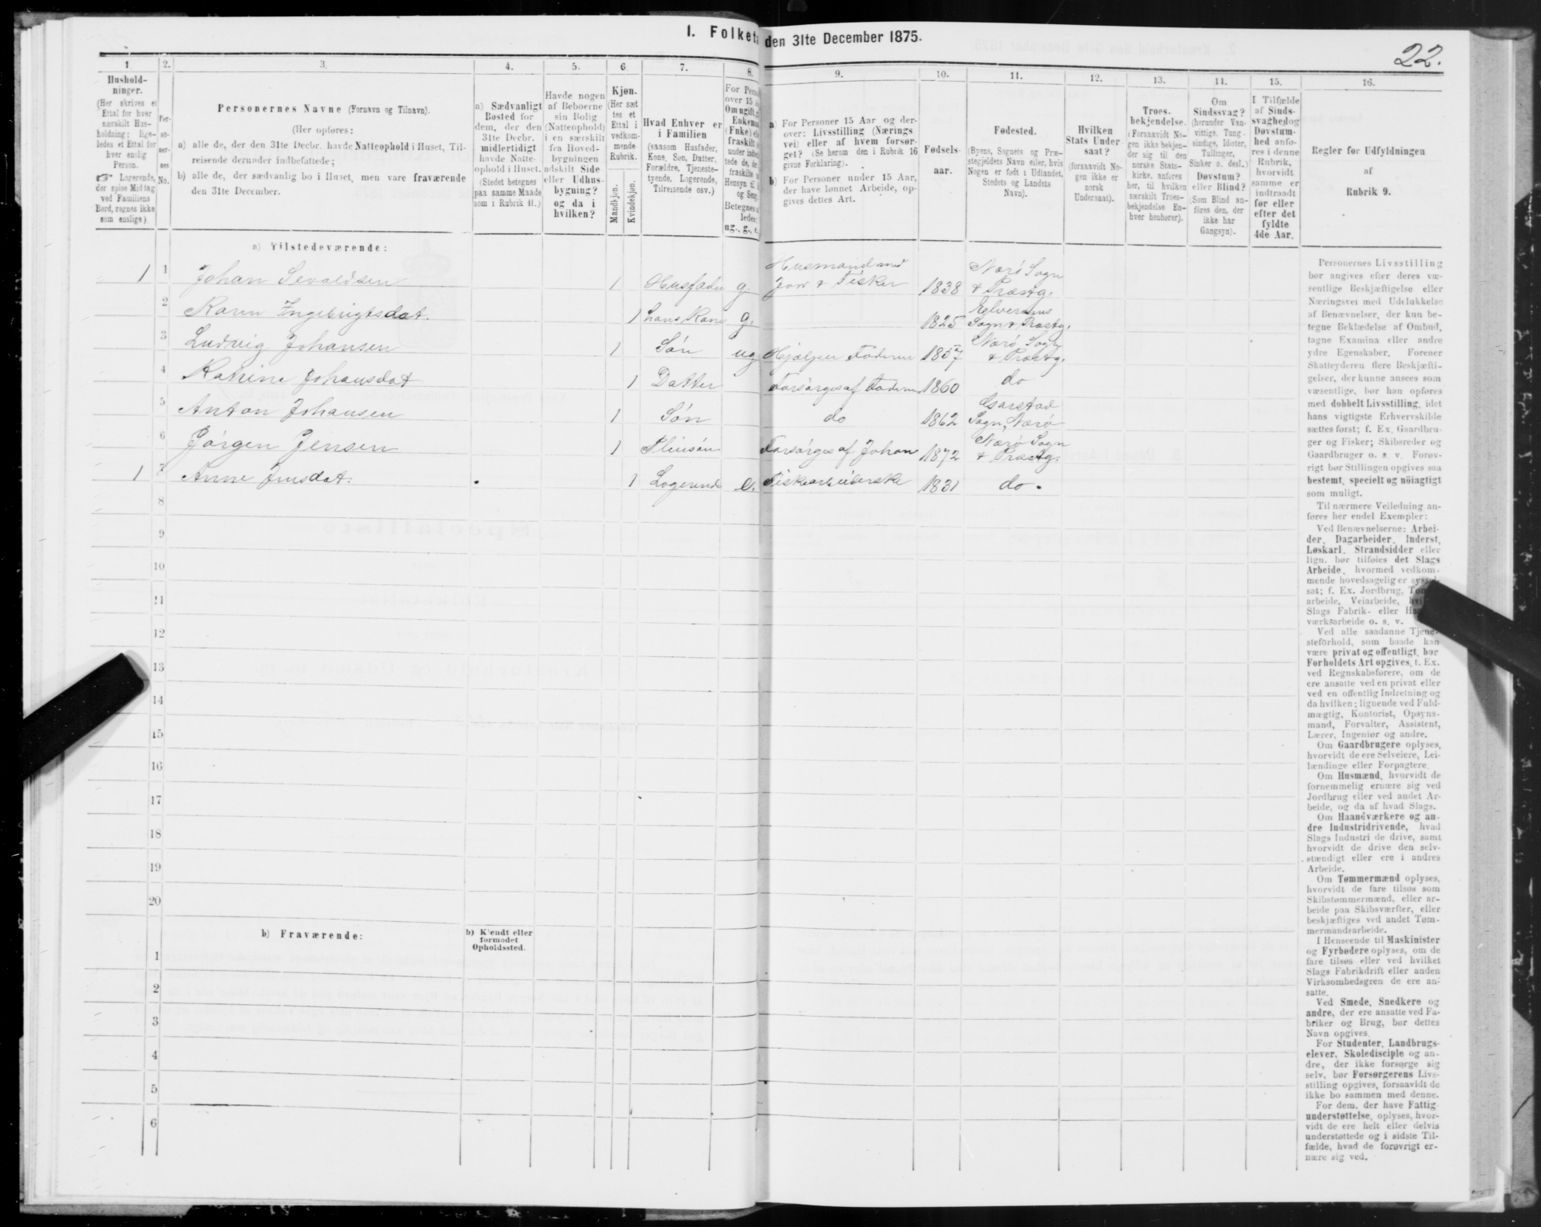 1. Folket den 31te December 1875.
22.
1 2. 3. 4. 5. 6 7. 8. 9. 10. 11. 12. 13. 14. 15. 16.
Hushold-
ninger.
(Her skrives et
Ettal for hver
særskilt Hus-
holdning; lige-
ledes et Ettal for
hver enslig
Person.
☞ Logerende,
der spise Middag
ved Familiens
Bord, regnes ikke
som enslige)
Per-
so-
ner-
nes
No.
Personernes Navne (Fornavn og Tilnavn).
(Her opføres:
a) alle de, der den 31te Decbr. havde Natteophold i Huset, Til-
reisende derunder indbefattede;
b) alle de, der sædvanlig bo i Huset, men vare fraværende
den 31te December.
a) Sædvanligt
Bosted for
dem, der den
31te Decbr.
midlertidigt
havde Natte-
ophold i Huset.
(Stedet betegnes
paa samme Maade
som i Rubrik 11.)
Havde nogen
af Beboerne
sin Bolig
(Natteophold)
i en særskilt
fra Hoved-
bygningen
adskilt Side
eller Udhus-
bygning?
og da i
hvilken?
Kjøn.
(Her sæt
tes et
Ettal i
vedkom-
mende
Rubrik.
Mandkjøn.
Kvindekjøn.
Hvad Enhver er
i Familien
(saasom Husfader,
Kone, Søn, Datter,
Forældre, Tjeneste-
tyende, Logerende,
Tilreisende osv.)
For Pers
over 15
Om ugift,
Enkem
(Enke) el
fraskilt
under indbe
tede de, de
fraskilte
Hensyn til
og Seng.
Betegnes
ledes:
ug., g., e.
a) For Personer 15 Aar og der-
over: Livsstilling (Nærings
vei) eller af hvem forsør-
get? (Se herom den i Rubrik 16
givne Forklaring).
b) For Personer under 15 Aar,
der have lønnet Arbeide, op-
gives dettes Art.
Fødsels-
aar.
Fødested.
(Byens, Sognets og Præ-
stegjeldets Navn eller, hvis
Nogen er født i Udlandet,
Stedets og Landets
Navn).
Hvilken
Stats Under
saat?
(forsaavidt No-
gen ikke er
norsk
Undersaat).
Troes-
bekjendelse.
(Forsaavidt No-
gen ikke bekjen-
der sig til den
norske Stats-
kirke, anføres
her, til hvilken
særskilt Troes-
bekjendelse En-
hver henhører).
Om
Sindssvag?
(herunder Van-
vittige, Tung-
sindige, Idioter,
Tullinger,
Sinker o. desl.)
Døvstum?
eller Blind?
(Som Blind an-
føres den, der
ikke har
Gangsyn).
I Tilfælde
af Sinds-
svaghed og
Døvstum-
hed anfø-
res i denne
Rubrik,
hvorvidt
samme er
indtraadt
før eller
efter det
fyldte
4de Aar.
Regler for Udfyldningen
af
Rubrik 9.
a) Tilstedeværende:
1 1 Johan Sevaldsen 1 Husfader g Husmand med Jord + Fisker 1838 Nærø Sogn + Præstg.
2 Karen Ingebrigtsdat. 1 hans Kone g. 1825 Sogn + Præstg.
3 Ludvig Johansen 1 Søn ug Hjælper Faderen 1857 Nærø Sogn + Præstg.
4 Katrine Johansdat 1 Datter Forsørges af Faderen 1860 do
5 Anton Johansen 1 Søn do 1862 Garstad Sogn, Nærø
6 Jörgen Jensen 1 Pleiesøn Forsørges af Johan 1872 Nærø Sogn + Præstg.
1 7 Anne Jensdat. 1 Logerende e. Fiskearbeiderske 1831 do.
8
9
10
11
12
13
14
15
16
17
18
19
20
b) Fraværende:
b) Kjendt eller
formodet
Opholdssted.
1
2
3
4
5
6
Personernes Livsstilling
bør angives efter deres væ-
sentlige Beskjæftigelse eller
Næringsvei med Udelukkelse
af Benævnelser, der kun be-
tegne Beklædelse af Ombud,
tagne Examina eller andre
ydre Egenskaber. Forener
Skatteyderen flere Beskjæfti-
gelser, der kunne ansees som
væsentlige, bør han opføres
med dobbelt Livsstilling, idet
hans vigtigste Erhvervskilde
sættes først; f. Ex. Gaardbru-
ger og Fisker; Skibsreder og
Gaardbruger o. s. v. Forøv-
rigt bør Stillingen opgives saa
bestemt, specielt og nöiagtigt
som muligt.
Til nærmere Veiledning an-
føres her endel Exempler:
Ved Benævnelserne: Arbei-
der, Dagarbeider, Inderst,
Løskarl, Strandsidder eller
lign. bør tilføies det Slags
Arbeide, hvormed vedkom-
mende hovedsagelig er syssel-
sat; f. Ex. Jordbrug,
arbeide, Veiarbeide,
Slags Fabrik- eller
værksarbeide o. s. v.
Ved alle saadanne Tjene-
steforhold, som baade kan
være privat og offentligt, bør
Forholdets Art opgives, f. Ex.
ved Regnskabsførere, om de
ere ansatte ved en privat eller
ved en offentlig Indretning og
da hvilken; lignende ved Fuld-
mægtig, Kontorist, Opsyns-
mand, Forvalter, Assistent,
Lærer, Ingeniør og andre.
Om Gaardbrugere oplyses,
hvorvidt de ere Selveiere, Lei-
lændinge eller Forpagtere.
Om Husmænd, hvorvidt de
fornemmelig ernære sig ved
Jordbrug eller ved andet Ar-
beide, og da af hvad Slags.
Om Haandværkere og an-
dre Industridrivende, hvad
Slags Industri de drive, samt
hvorvidt de drive den selv-
stændigt eller ere i andres
Arbeide.
Om Tømmermænd oplyses,
hvorvidt de fare tilsøs som
Skibstømmermænd, eller ar-
beide paa Skibsværfter, eller
beskjæftiges ved andet Tøm-
mermandsarbeide.
I Henseende til Maskinister
og Fyrbødere oplyses, om de
fare tilsøs eller ved hvilket
Slags Fabrikdrift eller anden
Virksomhedsgren de ere an-
satte.
Ved Smede, Snedkere og
andre, der ere ansatte ved Fa-
briker og Brug, bør dettes
Navn opgives.
For Studenter, Landbrugs-
elever, Skoledisciple og an-
dre, der ikke forsørge sig
selv, bør Forsørgerens Livs-
stilling opgives, forsaavidt de
ikke bo sammen med denne.
For dem, der have Fattig
understøttelse, oplyses, hvor-
vidt de ere helt eller delvis
understøttede og i sidste Til-
fælde, hvad de forøvrigt er-
nære sig ved.